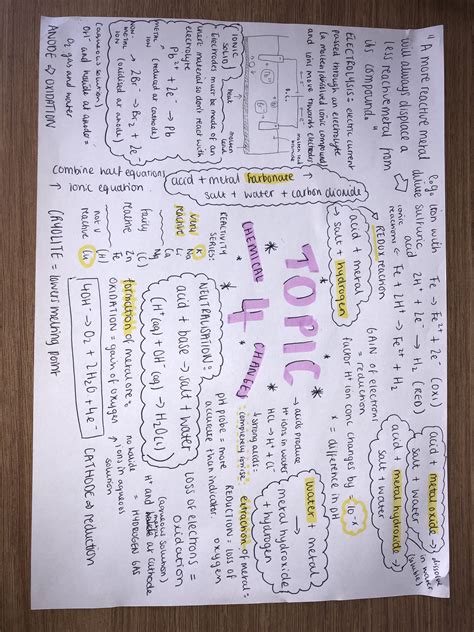 "A more reactive metal
will always displace a
less reactive metal from
its compound"
ELECTROLYSIS = electric current
passed through an electrolyte
(a molten/dissolved ionic compound)
and ions move towards electrodes
D.C.
molten
heat
IONIC
SOLID
Electrodes must be made of an
inert material so don't react with
electrolyte
Pb²⁺ + 2e⁻ → Pb
metal
ion (reduced at cathode)
2Br⁻ → Br₂ + 2e⁻
non-
metal (oxidised at anode)
ion
(aqueous solution)
OH⁻ and halide at anode =
O₂ gas and water
ANODE ⇒ OXIDATION
e.g. iron with
dilute sulfuric
acid
Fe → Fe²⁺ + 2e⁻ (OXI)
2H⁺ + 2e⁻ → H₂ (RED)
ionic
reactions ← Fe + 2H⁺ → Fe²⁺ + H₂
REDOX reaction
acid + metal
→ salt + hydrogen
acid + metal carbonate
salt + water + carbon dioxide
Combine half equations
ionic equation
REACTIVITY
SERIES:
very
reactive
K
Na
Li
Ca
Mg
fairly
reactive
(C)
Zn
Fe
not v
reactive
(H)
Cu
CRYOLITE = lowers melting point
acid + metal oxide →
salt + water
acid + metal hydroxide →
salt + water
dissolve
in water
GAIN of electron
= reduction
factor H⁺ ion conc changes by 10⁻ˣ
x = difference in pH
TOPIC
4
CHEMICAL CHANGES
NEUTRALISATION:
acid + base → salt + water
H⁺(aq) + OH⁻(aq) → H₂O(l)
formation of metal ore =
OXIDATION = gain of oxygen
4OH⁻ → O₂ + 2H₂O + 4e⁻
acids produce
H⁺ ions in water
HCl → H⁺ + Cl⁻
strong acids:
completely ionise
pH probe = more
accurate than indicator
water + metal
metal hydroxide
+ hydrogen
extraction of metal =
REDUCTION = loss of
oxygen
LOSS of electrons =
Oxidation
ions in aqueous
solution
(aqueous solution)
H⁺ and metal at cathode
no halide
= HYDROGEN GAS
CATHODE ⇒ reduction